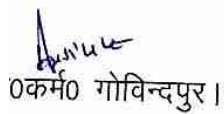 ०कर्म० गोविन्दपुर।